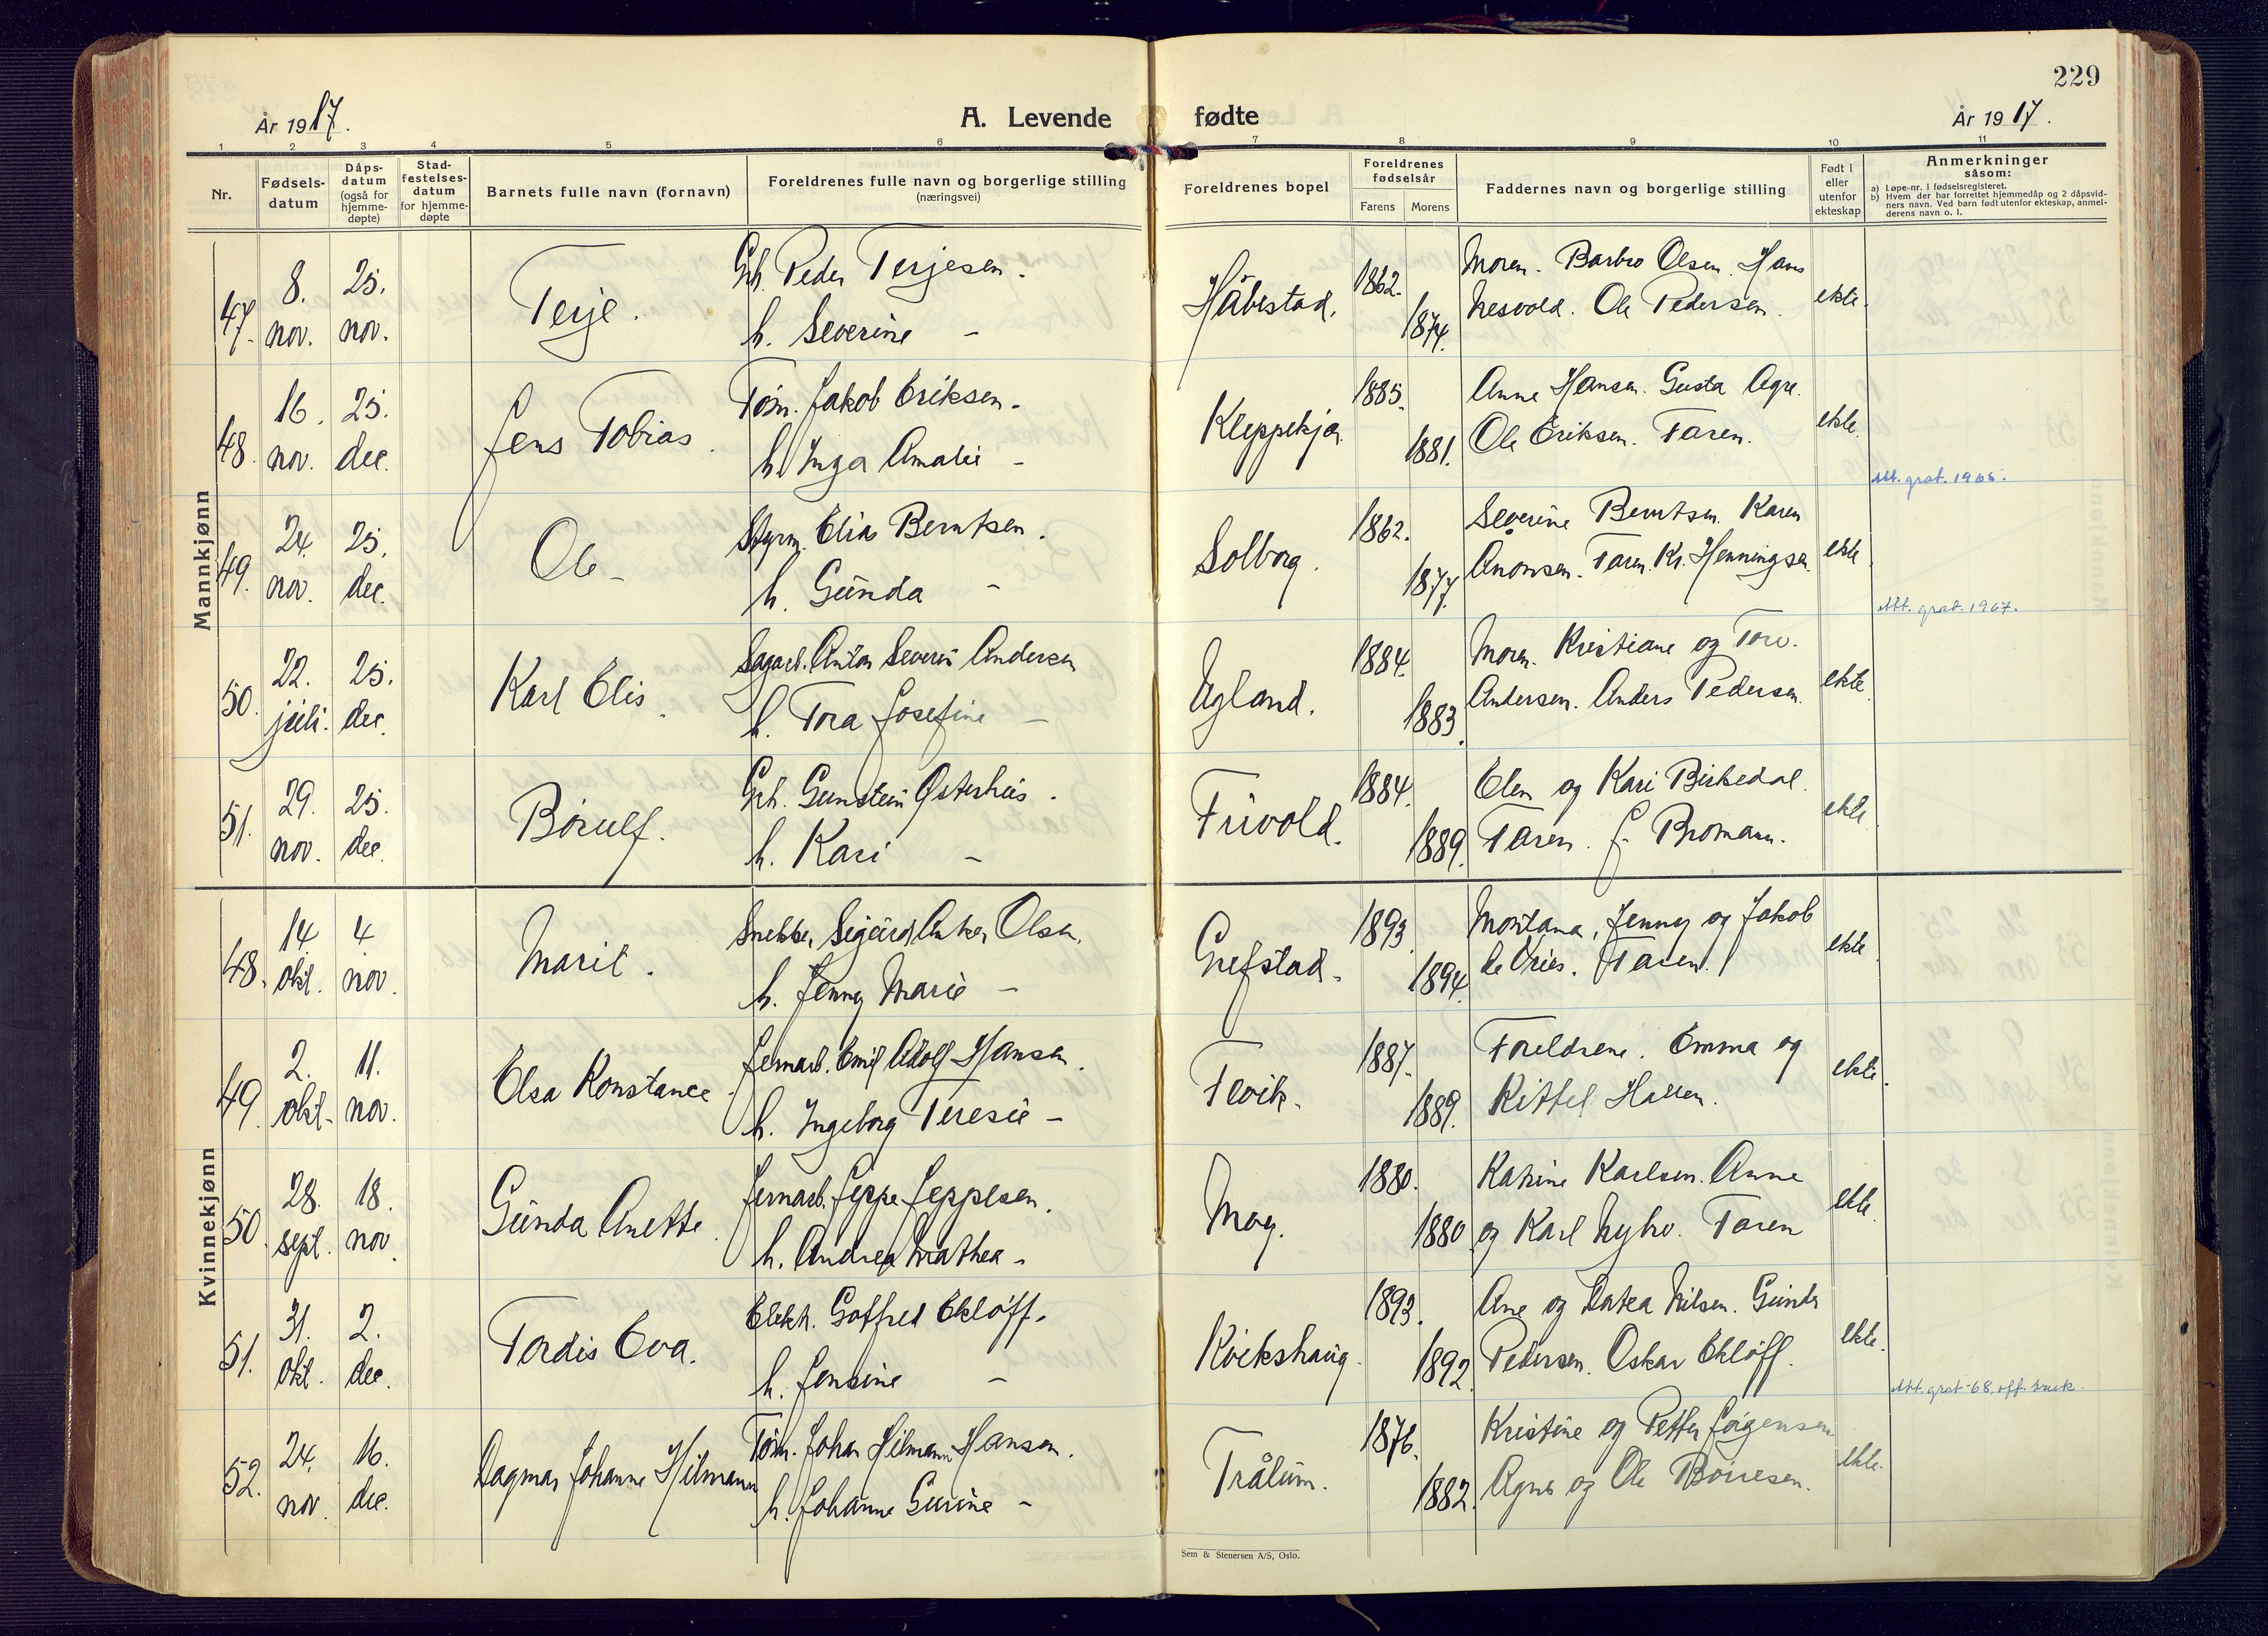 229
År 1917.
A. Levende fødte
År 1917.
1 2 3 4 5 6 7 8 9 10 11
Nr.
Fødsels-
datum
Dåps-
datum
(også for
hjemme-
døpte)
Stad-
festelses-
datum
for hjemme-
døpte
Barnets fulle navn (fornavn)
Foreldrenes fulle navn og borgerlige stilling
(næringsvei)
Foreldrenes bopel
Foreldrenes
fødselsår
Farens Morens
Faddernes navn og borgerlige stilling
Født i
eller
utenfor
ekteskap
Anmerkninger
såsom:
a) Løpe-nr. i fødselsregisteret.
b) Hvem der har forrettet hjemmedåp og 2 dåpsvid-
ners navn. Ved barn født utenfor ekteskap, anmel-
derens navn o. l.
Mannkjønn
47. 8. nov. 25. nov. Terje. Gh. Peder Terjesen.
h. Severine -
Håbestad. 1862. 1874. Moren. Barbro Olsen. Hans
Nesvold. Ole Pedersen. ekte.
48. 16. nov. 25. dec. Jens Tobias. Tøm. Jakob Eriksen.
h. Inga Amalie -
Kleppekjær. 1885. 1881. Anne Hansen. Gusta Agre.
Ole Eriksen. Faren. ekte.
Att. grat. 1965.
49. 24. nov. 25. dec. Ole - Styrm. Elias Berntsen.
h. Gunda -
Solborg. 1862. 1877. Severine Berntsen. Karen
Anonsen. Faren. Kr. Henningsen. ekte
Att. grat. 1967.
50. 22. juli. 25. dec. Karl Elis. Sagarb. Anton Severin Andersen
h. Tora Josefine -
Ugland. 1884. 1883. Moren. Kristiane og Torv.
Andersen. Anders Pedersen. ekte
51. 29. nov. 25. dec. Børulf. Gh. Gunstein Østerhus.
h. Kari -
Frivold. 1884. 1889. Elen og Kari Birkedal.
Faren. J. Bromann. ekte
Kvinnekjønn
48. 14 okt. 4 nov. Marit. Snekker Sigurd Anker Olsen.
h. Jenny Marie -
Grefstad. 1893. 1894. Montana, Jenny og Jakob
de Vries. Faren. ekte
49. 2. okt. 11. nov. Elsa Konstance. Jernarb. Emil Adolf Hansen.
h. Ingeborg Teresie -
Fevik. 1887. 1889. Foreldrene. Emma og
Kittel Hallen. ekte.
50. 28. sept. 18. nov. Gunda Anette. Jernarb. Jeppe Jeppesen.
h. Andrea Mathea -
Moy. 1880. 1880. Katrine Karlsen. Anne
og Karl Nybo. Faren ekte.
51. 31. okt. 2. dec. Tordis Eva. Elektr. Gotfred Ekløff.
h. Jensine -
Kvikshaug. 1893. 1892. Ane og Datea Nilsen. Gunder
Pedersen. Oskar Ekløff. ekte.
Att. grat -68, off. bruk.
52. 24. nov. 16. dec. Dagmar Johanne Hilmann Tøm. Johan Hilmann Hansen.
h. Johanne Gurine -
Trålum. 1876. 1882. Kristine og Petter Jørgensen.
Agnes og Ole Børresen. ekte.
Sem & Stenersen A/S, Oslo.